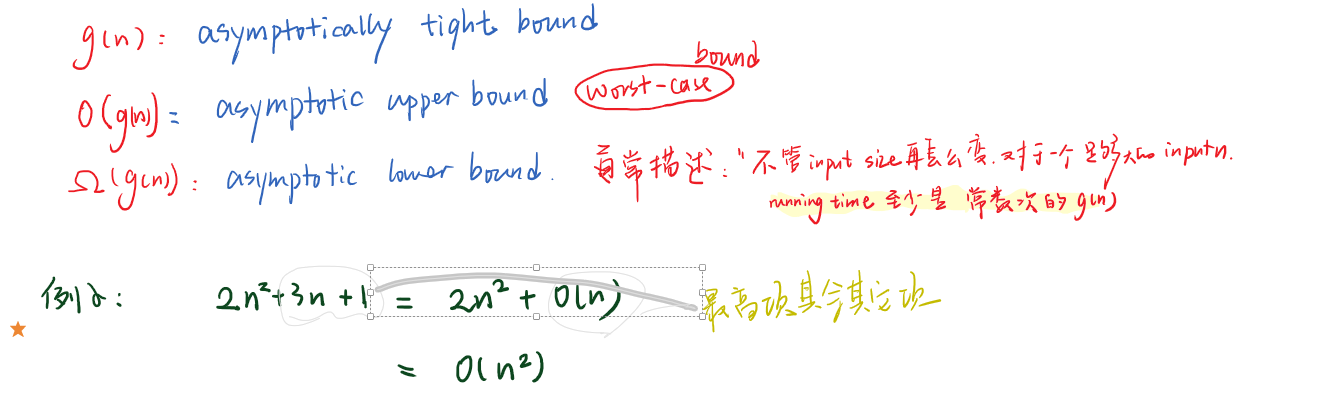 g(n): asymptotically tight bound
bound
O(g(n)) = asymptotic upper bound worst-case
Ω(g(n)): asymptotic lower bound. 常描述:"不管input size再怎么变.对于一个足够大的 input n.
running time 至少是 常数次的g(n)
例2: 2n²+3n+1 = 2n²+O(n) 最高项其余其它项
= O(n²)